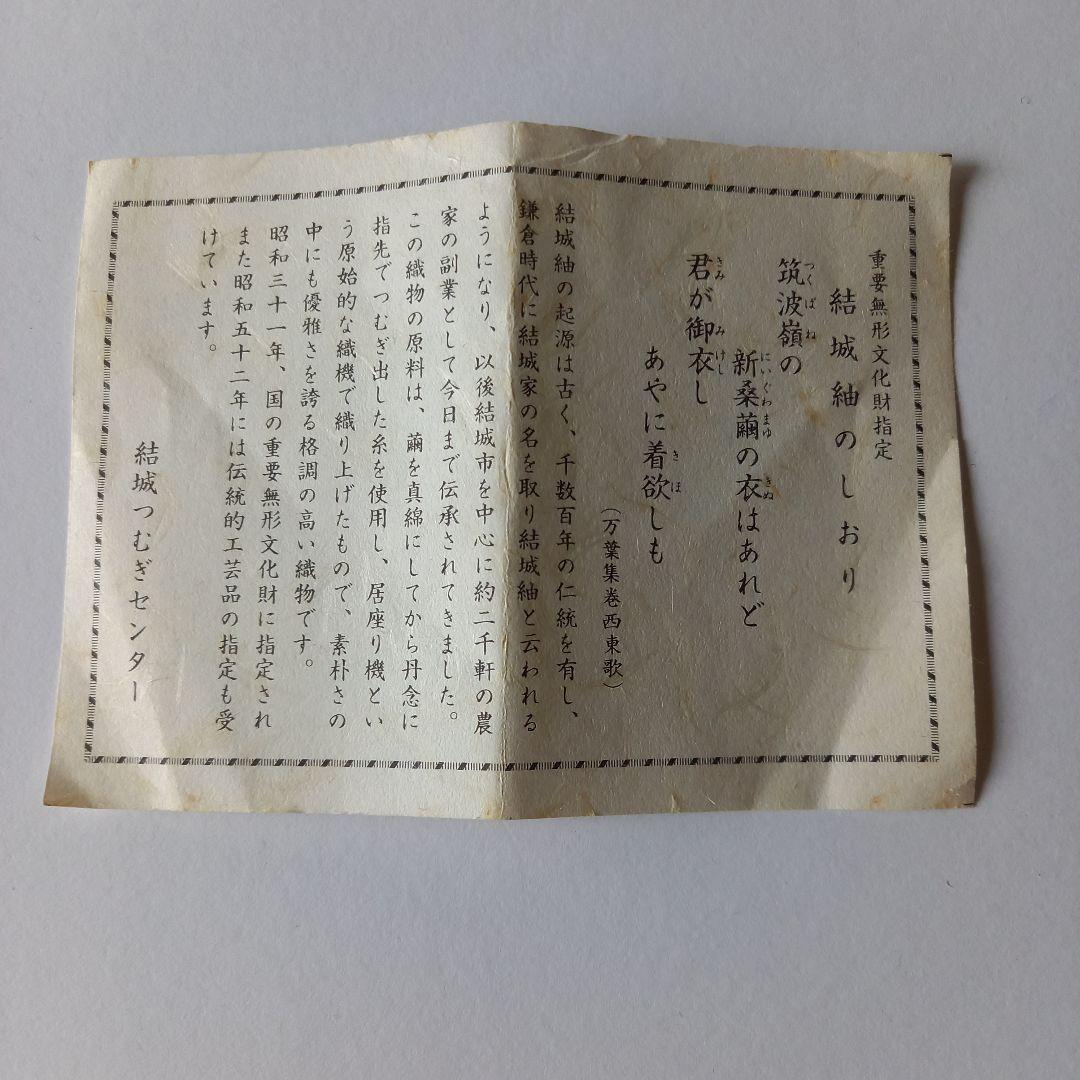 重要無形文化財指定
結城紬のしおり
筑波嶺の
新桑繭の衣はあれど
君が御衣し
あやに着欲しも
(万葉集巻西東歌)
結城紬の起源は古く、千数百年の仁統を有し、
鎌倉時代に結城家の名を取り結城紬と云われる
ようになり、以後結城市を中心に約二千軒の農
家の副業として今日まで伝承されてきました。
この織物の原料は、繭を真綿にしてから丹念に
指先でつむぎ出した糸を使用し、居座り機とい
う原始的な織機で織り上げたもので、素朴さの
中にも優雅さを誇る格調の高い織物です。
昭和三十一年、国の重要無形文化財に指定され
また昭和五十二年には伝統的工芸品の指定も受
けています。
結城つむぎセンター